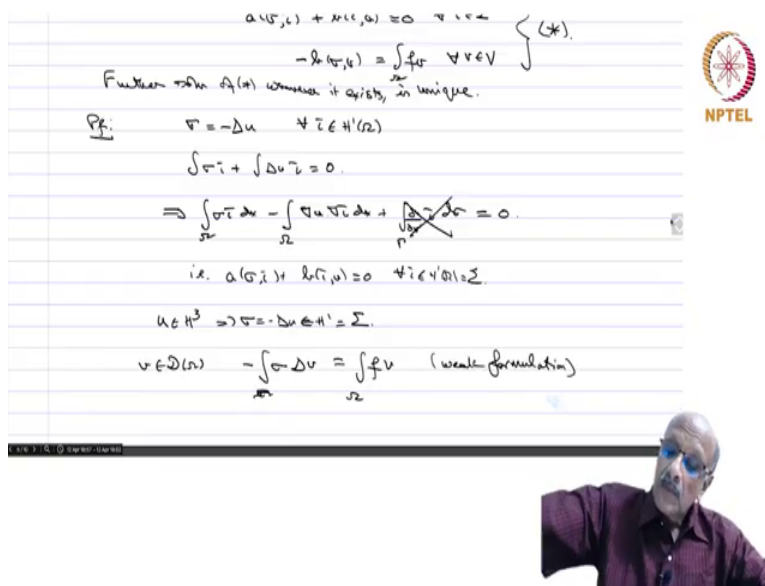 a(σ,τ) + b(τ,u) = 0 ∀ τ∈Σ
-b(σ,v) = ∫_Ω fv ∀ v∈V } (*).
Further soln of (*) whenever it exists, is unique.
Pf: σ = -Δu ∀ τ ∈ H¹(Ω)
∫στ + ∫Δu τ = 0.
⇒ ∫_Ω στ dx - ∫_Ω ∇u ∇τ dx + ∫_Γ τ dσ = 0.
i.e. a(σ,τ) + b(τ,u) = 0 ∀ τ∈H¹(Ω) = Σ.
u∈H³ ⇒ σ = -Δu ∈ H¹ = Σ.
v∈D(Ω) -∫_Ω σ Δv = ∫_Ω fv (weak formulation)
NPTEL